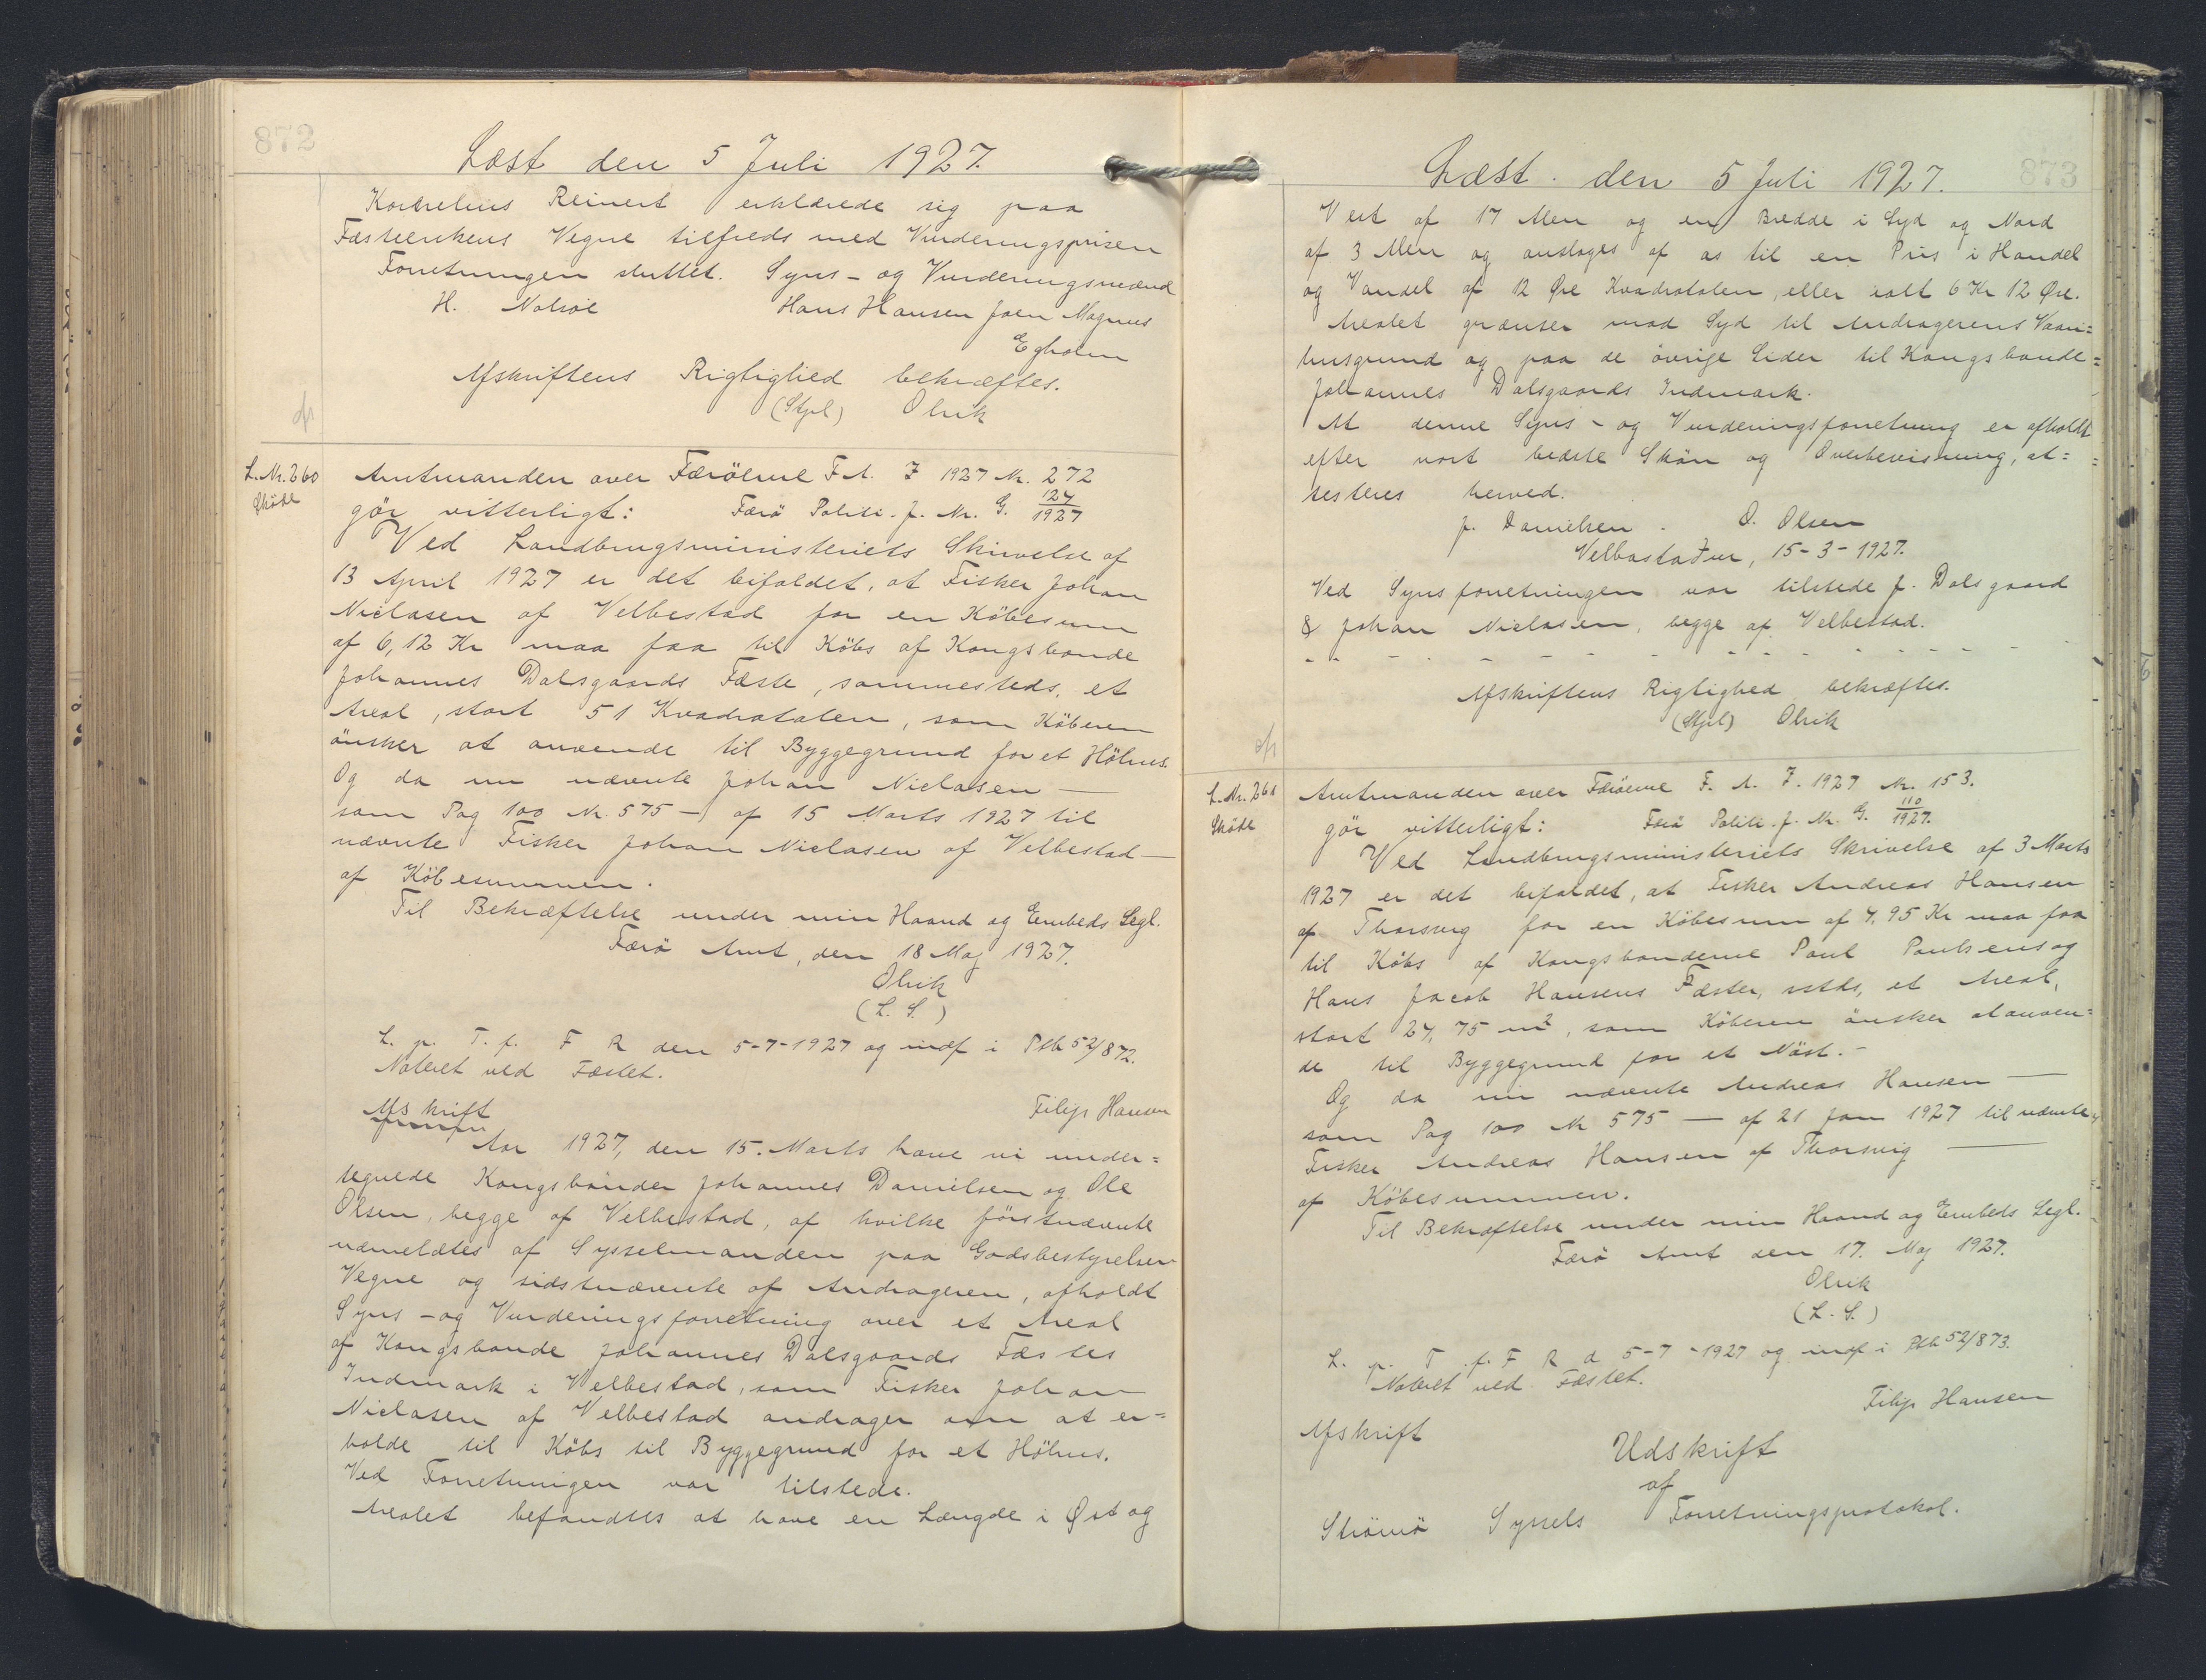 872
Læst den 5 Juli 1927.
Kornelius Reinert erklærede sig paa
Fæsteenkens Vegne tilfreds med Vurderingsprisen
Forretningen sluttet. Syns- og Vurderingsmænd
H. Nolsøe Hans Hansen Joen Magnus
Egholm
Afskriftens Rigtighed bekræftes.
(Stpl) Olrik
L. Nr. 260
Skøde
Amtmanden over Færöerne F A. J 1927 Nr. 272
gör vitterligt: Færö Politi. J. Nr. G. 124/1927
Ved Landbrugsministeriets Skrivelse af
13 April 1927 er det bifaldet, at Fisker Johan
Niclasen af Velbestad for en Köbesum
af 6,12 Kr maa faa til Köbs af Kongsbonde
Johannes Dalsgaards Fæste, sammesteds, et
Areal, stort 51 Kvadratalen, som Köberen
önsker at anvende til Byggegrund for et Höhus.
Og da nu nævnte Johan Niclasen —
som Pag 100 Nr. 575 — af 15 Marts 1927 til
nævnte Fisker Johan Niclasen af Velbestad —
af Köbesummen.
Til Bekræftelse under min Haand og Embeds Segl.
Færö Amt, den 18 Maj 1927.
Olrik
(L. S.)
L. p. T. f. F R den 5-7-1927 og indf i Ptk 52/872.
Noteret ved Fæstet.
Filip Hansen
Afskrift
Aar 1927, den 15. Marts have vi under=
tegnede Kongsbönder Johannes Danielsen og Ole
Olsen, begge af Velbestad, af hvilke förstnævnte
udmeldtes af Sysselmanden paa Godsbestyrelsen
Vegne og sidstnævnte af Andrageren, afholdt
Syns- og Vurderingsforretning over et Areal
af Kongsbonde Johannes Dalsgaards Fæstes
Indmark i Velbestad, som Fisker Johan
Niclasen af Velbestad andrager om at er=
holde til Köbs til Byggegrund for et Höhus.
Ved Forretningen var tilstede.
Arealet befandtes at have en Længde i Øst og
873
Læst. den 5 Juli 1927.
Vest af 17 Alen og en Bredde i Syd og Nord
af 3 Alen og anslages af os til en Pris i Handel
og Vandel af 12 Øre Kvadratalen, eller ialt 6 Kr 12 Øre.
Arealet grænser mod Syd til Andragerens Vaan=
husgrund og paa de övrige Sider til Kongsbonde=
Johannes Dalsgaards Indmark.
At denne Syns- og Vurderingsforretning er afholdt
efter vort bedste Skön og Overbevisning, at=
testeres herved.
J. Danielsen. O. Olsen
Velbastaður, 15-3-1927.
Ved Synsforretningen var tilstede J. Dalsgaard
& Johan Niclasen, begge af Velbestad.
Afskriftens Rigtighed bekræftes.
(Stpl) Olrik
L. Nr. 261
Skøde
Amtmanden over Færöerne F. A. J. 1927 Nr. 153.
gör vitterligt: Færö Politi. J. Nr. G. 110/1927.
Ved Landbrugsministeriets Skrivelse af 3 Marts
1927 er det bifaldet, at Fisker Andreas Hansen
af Thorsvig for en Købesum af 4,95 Kr maa faa
til Købs af Kongsbönderne Poul Poulsens og
Hans Jacob Hansens Fæster, ssteds, et Areal,
stort 24,75 m², som Köberen önsker at anven=
de til Byggegrund for et Nöst.-
Og da nu nævnte Andreas Hansen —
som Pag 100 Nr 575 — af 21 Jan 1927 til nævnte
Fisker Andreas Hansen af Thorsvig —
af Købesummen.
Til Bekræftelse under min Haand og Embeds Segl.
Færö Amt den 17. Maj 1927.
Olrik
(L. S.)
L. p. T. f. F R d 5-7-1927 og indf i Ptk 52/873.
Noteret ved Fæstet.
Filip Hansen
Afskrift
Udskrift
af
Strömö Syssels Forretningsprotokol.